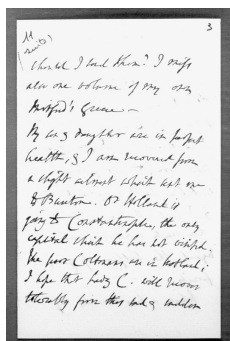 3
should I lend them? I miss
also one volume of my own
Mitford's Greece —
My wg daughter are in perfect
health, & I am recovered from
a slight ailment which sent me
to Buxton. Dr Holland is
going to Constantinople, the only
capital which he has not visited.
The poor Coltmans are in Scotland;
I hope that Lady C. will recover
tolerably from this sad & sudden